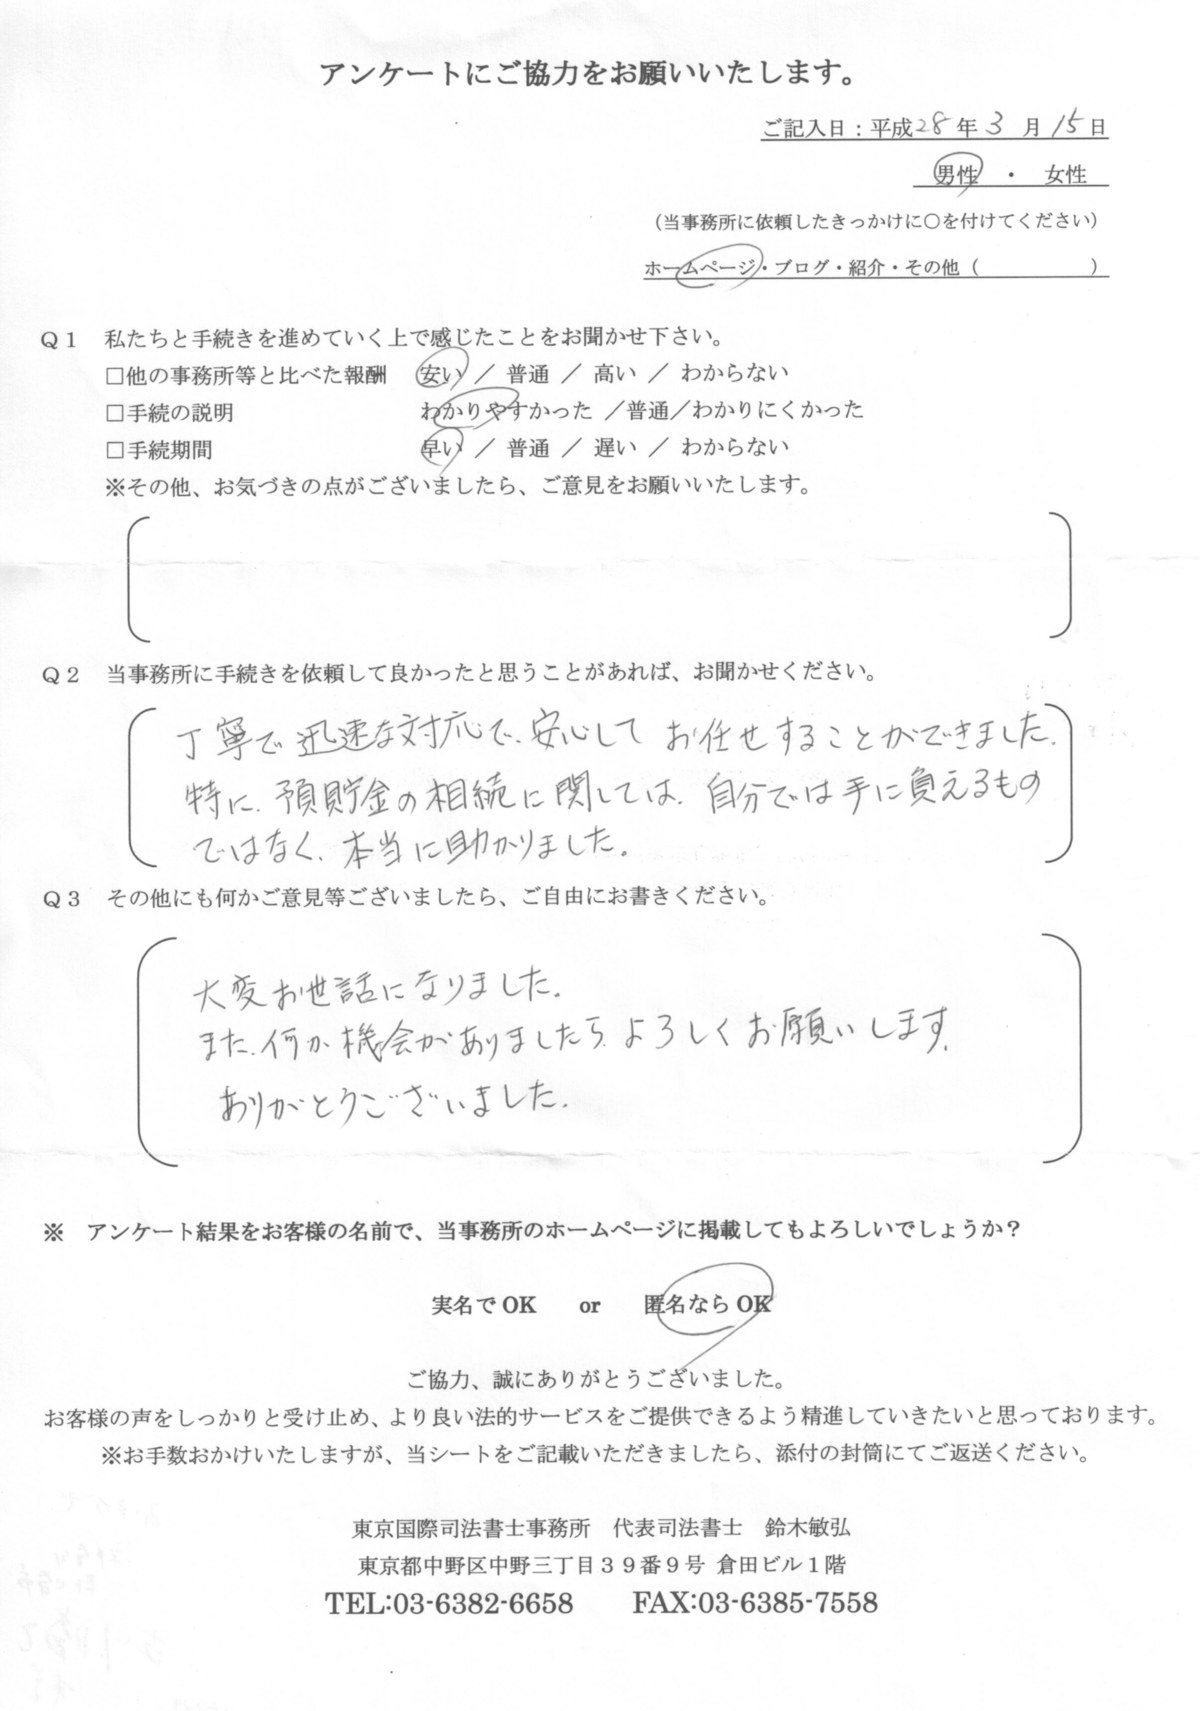 アンケートにご協力をお願いいたします。
ご記入日：平成28年3月15日
男性 ・ 女性
（当事務所に依頼したきっかけに○を付けてください）
ホームページ・ブログ・紹介・その他（　　　　　）
Ｑ１　私たちと手続きを進めていく上で感じたことをお聞かせ下さい。
□他の事務所等と比べた報酬　安い ／ 普通 ／ 高い ／ わからない
□手続の説明　わかりやすかった ／普通／わかりにくかった
□手続期間　早い ／ 普通 ／ 遅い ／ わからない
※その他、お気づきの点がございましたら、ご意見をお願いいたします。
Ｑ２　当事務所に手続きを依頼して良かったと思うことがあれば、お聞かせください。
丁寧で迅速な対応で、安心してお任せすることができました。
特に、預貯金の相続に関しては、自分では手に負えるもの
ではなく、本当に助かりました。
Ｑ３　その他にも何かご意見等ございましたら、ご自由にお書きください。
大変お世話になりました。
また、何か機会がありましたら、よろしくお願いします。
ありがとうございました。
※　アンケート結果をお客様の名前で、当事務所のホームページに掲載してもよろしいでしょうか？
実名で OK　or　匿名なら OK
ご協力、誠にありがとうございました。
お客様の声をしっかりと受け止め、より良い法的サービスをご提供できるよう精進していきたいと思っております。
※お手数おかけいたしますが、当シートをご記載いただきましたら、添付の封筒にてご返送ください。
東京国際司法書士事務所　代表司法書士　鈴木敏弘
東京都中野区中野三丁目３９番９号 倉田ビル１階
TEL:03-6382-6658　FAX:03-6385-7558